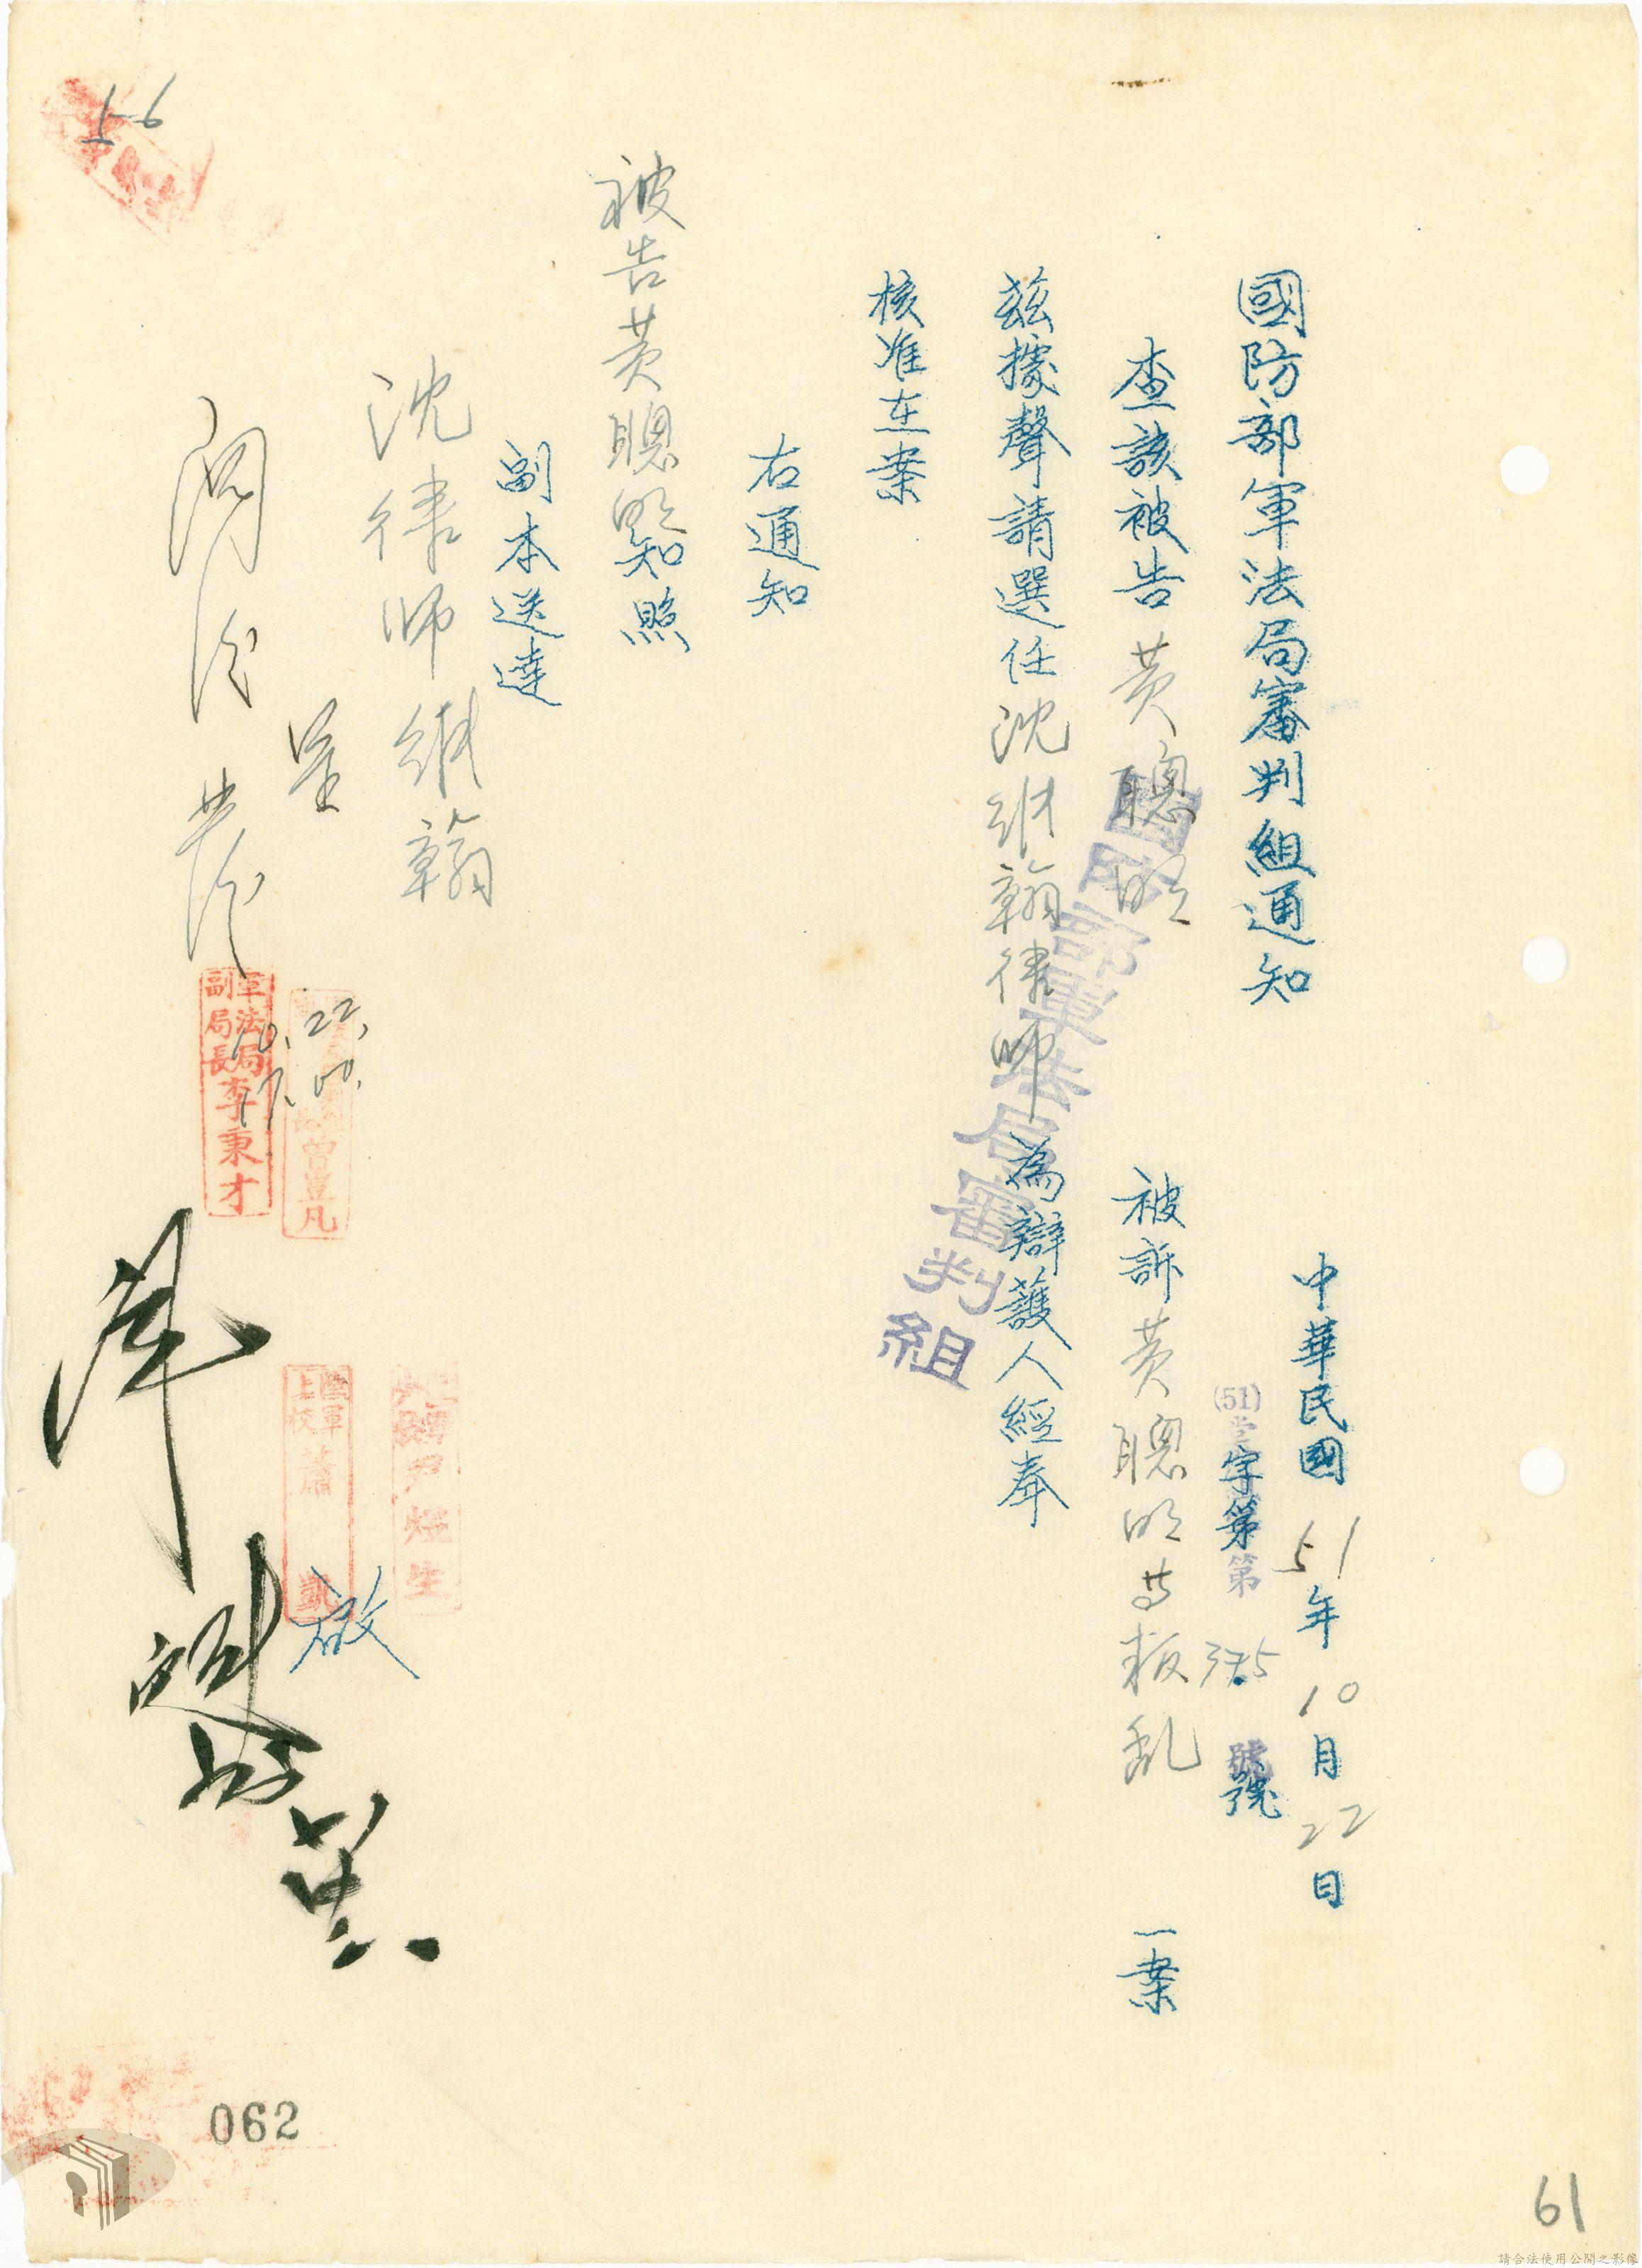 國防部軍法局審判組通知
中華民國51年10月22日
(51)堂字第第375號號
查該被告黃聰明被訴黃聰明等叛乱一案
茲據聲請選任沈維翰律師為辯護人經奉
核准在案
國防部軍法局審判組
右通知
被告黃聰明知照
副本送達
沈律師維翰
呈
軍法局
副局長李秉才
曾豊凡
10.22,
17.00.
陸軍
上校蕭凱
尹煙生
5-6
062
61
請合法使用公開之影像